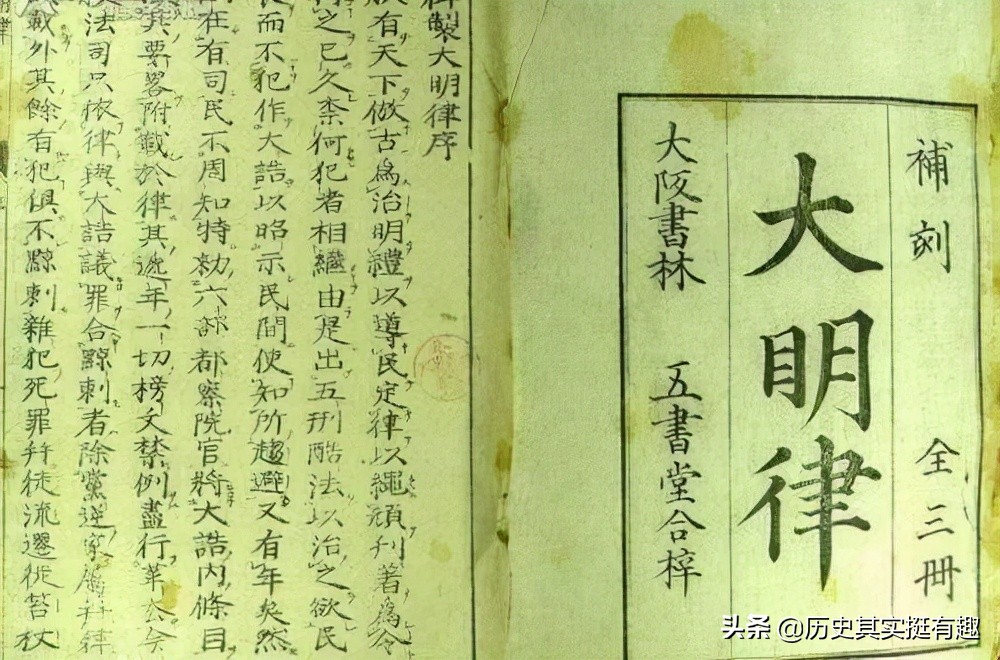 補刻　全三冊
大明律
大阪書林　五書堂合梓
製大明律序
有天下倣古爲治明禮以導民定律以繩頑刊著爲令
之已久柰何犯者相繼由是出五刑酷法以治之欲民
而不犯作大誥以昭示民間使知所趨避又有年矣然
在有司民不周知特勅六部都察院官將大誥内條目
其要畧附載於律其逓年一切榜文禁例盡行革去今
法司只依律與大誥議罪合黥刺者除黨逆家屬幷律
載外其餘有犯俱不黥刺雜犯死罪幷徒流遷徙笞杖
头条 @历史其实挺有趣